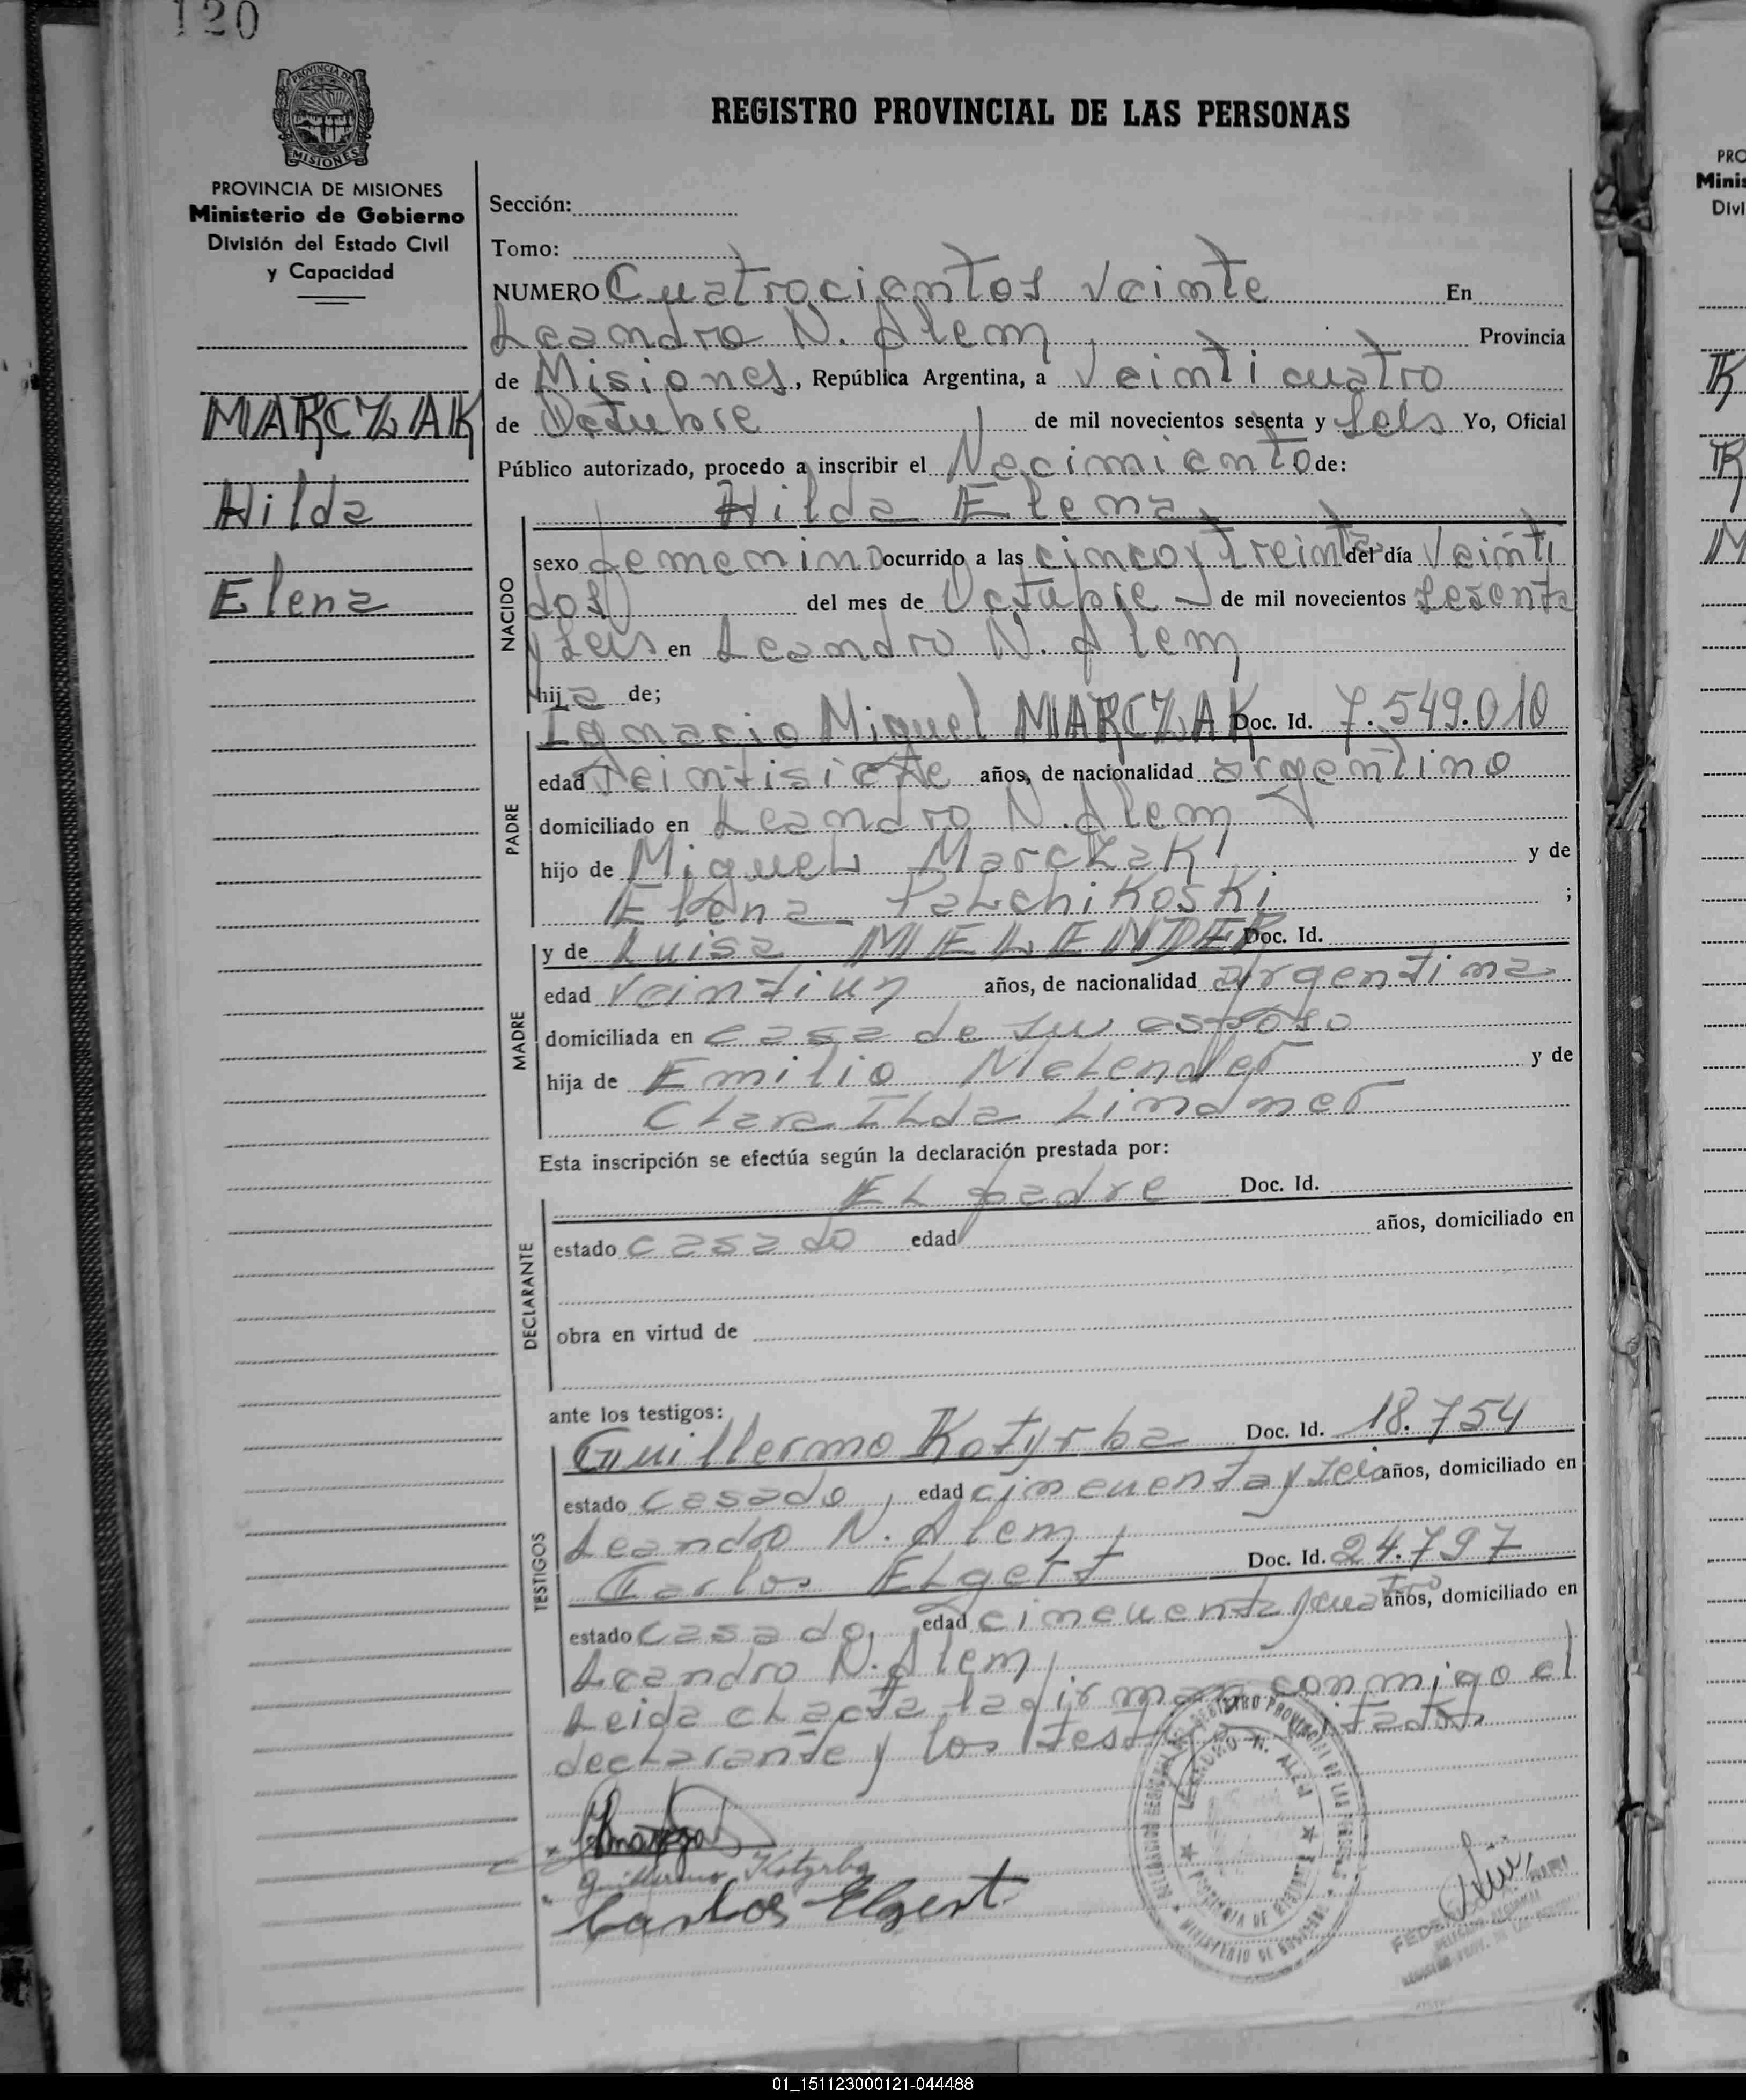 120
PROVINCIA DE
MISIONES
PROVINCIA DE MISIONES
Ministerio de Gobierno
División del Estado Civil
y Capacidad
MARCZAK
Hilda
Elena
REGISTRO PROVINCIAL DE LAS PERSONAS
Sección:
Tomo:
NUMERO Cuatrocientos veinte En
Leandro N. Alem Provincia
de Misiones, República Argentina, a Veinticuatro
de Octubre de mil novecientos sesenta y seis Yo, Oficial
Público autorizado, procedo a inscribir el Nacimiento de:
Hilda Elena
NACIDO
sexo femenino ocurrido a las cinco y treinta del día veinti
dos del mes de Octubre de mil novecientos sesenta
y seis en Leandro N. Alem
hija de;
PADRE
Ignacio Miguel MARCZAK Doc. Id. 7.549.010
edad Veintisiete años, de nacionalidad argentino
domiciliado en Leandro N. Alem
hijo de Miguel Marczak y de
Elena Palchikoski ;
MADRE
y de Luisa MELENDER Doc. Id.
edad veintiun años, de nacionalidad argentina
domiciliada en casa de su esposo
hija de Emilio Melender y de
Clara Ilda Lindner
Esta inscripción se efectúa según la declaración prestada por:
DECLARANTE
El padre Doc. Id.
estado casado edad años, domiciliado en
obra en virtud de
ante los testigos:
TESTIGOS
Guillermo Kotyrba Doc. Id. 18.754
estado casado, edad cincuenta y seis años, domiciliado en
Leandro N. Alem,
Carlos Elgert Doc. Id. 24.797
estado casado, edad cincuenta y cuatro años, domiciliado en
Leandro N. Alem.
Leida el acta la firman conmigo el
declarante y los
Guillermo Kotyrba
Carlos Elgert
PRO
Minis
Divi
01_151123000121-044488